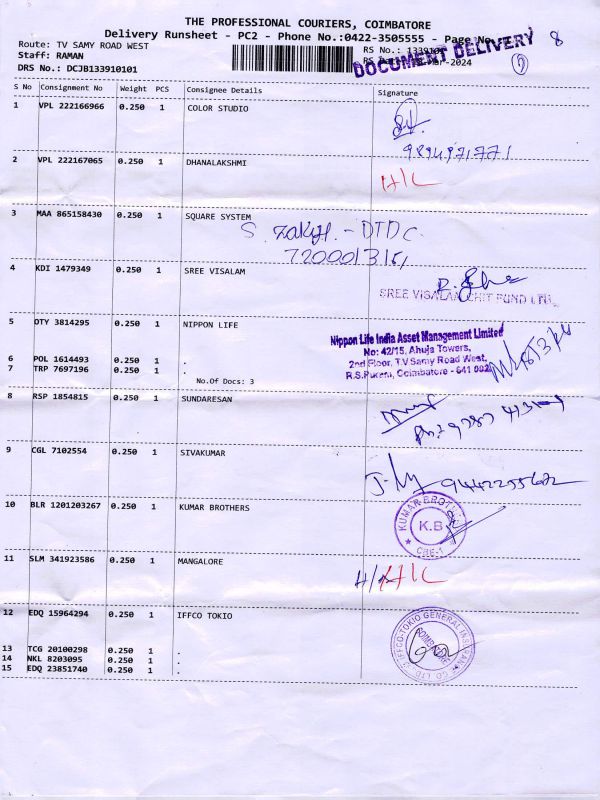 THE PROFESSIONAL COURIERS, COIMBATORE
Delivery Runsheet - PC2 - Phone No.:0422-3505555 - Page No.:
8
Route: TV SAMY ROAD WEST
RS No.: 13391
DOCUMENT DELIVERY
Staff: RAMAN
-Mar-2024
DRS No.: DCJB133910101
S No Consignment No Weight PCS Consignee Details Signature
1 VPL 222166966 0.250 1 COLOR STUDIO
9894971771
2 VPL 222167065 0.250 1 DHANALAKSHMI
H/C
3 MAA 865158430 0.250 1 SQUARE SYSTEM
S. - DTDC
4 KDI 1479349 0.250 1 SREE VISALAM
SREE VISALAM CHIT FUND LTD.
5 OTY 3814295 0.250 1 NIPPON LIFE
Nippon Life India Asset Management Limited
No: 42/15, Ahuja Towers,
2nd Floor, T.V Samy Road West,
R.S.Puram, Coimbatore - 641 002
6 POL 1614493 0.250 1 .
7 TRP 7697196 0.250 1 .
No.Of Docs: 3
8 RSP 1854815 0.250 1 SUNDARESAN
9 CGL 7102554 0.250 1 SIVAKUMAR
9442255622
10 BLR 1201203267 0.250 1 KUMAR BROTHERS
KUMAR BROTHERS
K.B
CBE-1
11 SLM 341923586 0.250 1 MANGALORE
H/C
12 EDQ 15964294 0.250 1 IFFCO TOKIO
IFFCO-TOKIO GENERAL INSURANCE CO. LTD.
COIMBATORE
13 TCG 20100298 0.250 1 .
14 NKL 8203095 0.250 1 .
15 EDQ 23851740 0.250 1 .